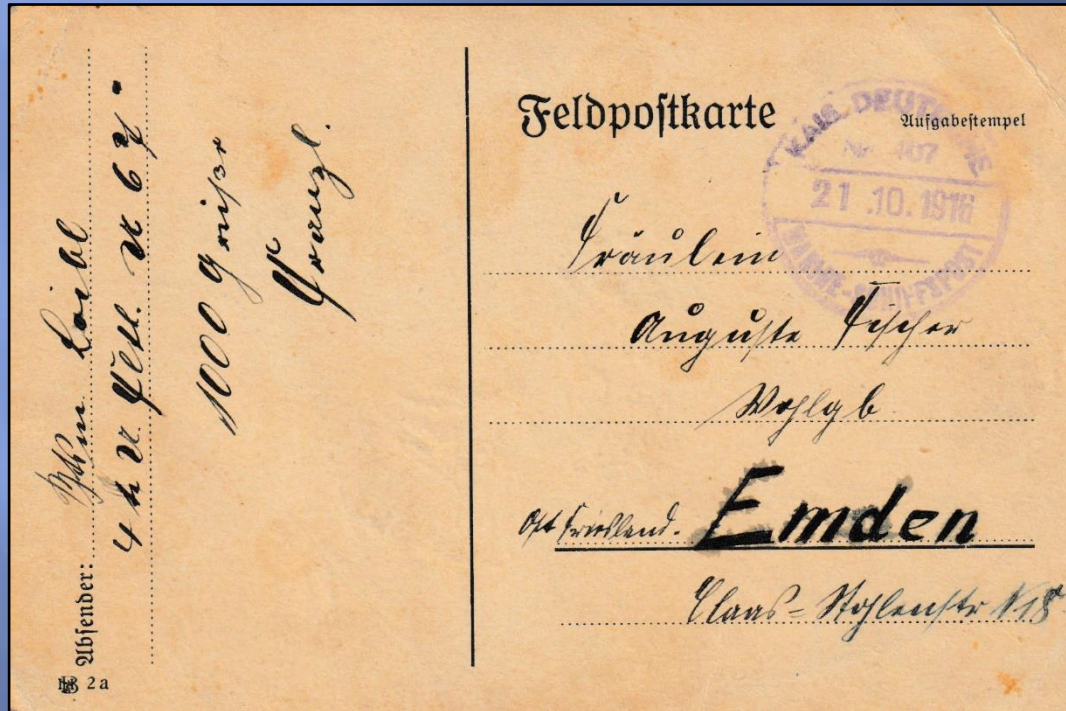 Absender: Loibl
4 U Fltl. U 67
1000 Grüsse
Franzl.
2a
Feldpostkarte
Aufgabestempel
KAIS. DEUTSCHE
Nr. 407
21.10.1916
MARINE-SCHIFFSPOST
Fräulein
Auguste Fischer
Wohlgb
Ost Friesland. Emden
Claas-Tholenstr N 18